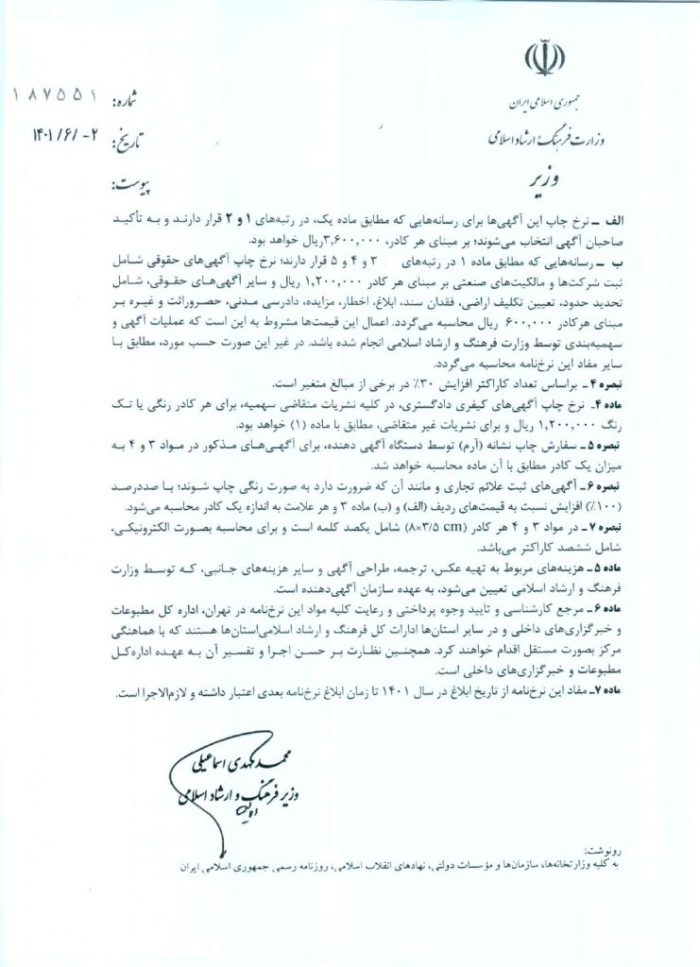 جمهوری اسلامی ایران
وزارت فرهنگ و ارشاد اسلامی
وزیر
شماره: ۱۸۷۵۵۱
تاریخ: ۱۴۰۱/۶/۰۲
پیوست:
الف – نرخ چاپ این آگهی‌ها برای رسانه‌هایی که مطابق ماده یک، در رتبه‌های ۱ و ۲ قرار دارند و به تأکید
صاحبان آگهی انتخاب می‌شوند؛ بر مبنای هر کادر، ۳,۶۰۰,۰۰۰ریال خواهد بود.
ب – رسانه‌هایی که مطابق ماده ۱ در رتبه‌های ۳ و ۴ و ۵ قرار دارند؛ نرخ چاپ آگهی‌های حقوقی شامل
ثبت شرکت‌ها و مالکیت‌های صنعتی بر مبنای هر کادر ۱,۲۰۰,۰۰۰ ریال و سایر آگهی‌های حقوقی، شامل
تحدید حدود، تعیین تکلیف اراضی، فقدان سند، ابلاغ، اخطار، مزایده، دادرسی مدنی، حصروراثت و غیره بر
مبنای هرکادر ۶۰۰,۰۰۰ ریال محاسبه می‌گردد. اعمال این قیمت‌ها مشروط به این است که عملیات آگهی و
سهمیه‌بندی توسط وزارت فرهنگ و ارشاد اسلامی انجام شده باشد. در غیر این صورت حسب مورد، مطابق با
سایر مفاد این نرخ‌نامه محاسبه می‌گردد.
تبصره ۴ – براساس تعداد کاراکتر افزایش ۳۰٪ در برخی از مبالغ متغیر است.
ماده ۴ـ نرخ چاپ آگهی‌های کیفری دادگستری، در کلیه نشریات متقاضی سهمیه، برای هر کادر رنگی یا تک
رنگ ۱,۲۰۰,۰۰۰ ریال و برای نشریات غیر متقاضی، مطابق با ماده (۱) خواهد بود.
تبصره ۵ – سفارش چاپ نشانه (آرم) توسط دستگاه آگهی دهنده، برای آگهی‌های مذکور در مواد ۳ و ۴ به
میزان یک کادر مطابق با آن ماده محاسبه خواهد شد.
تبصره ۶ – آگهی‌های ثبت علائم تجاری و مانند آن که ضرورت دارد به صورت رنگی چاپ شوند؛ با صددرصد
(۱۰۰٪) افزایش نسبت به قیمت‌های ردیف (الف) و (ب) ماده ۳ و هر علامت به اندازه یک کادر محاسبه می‌شود.
تبصره ۷ – در مواد ۳ و ۴ هر کادر (۸×۳/۵ cm) شامل یکصد کلمه است و برای محاسبه بصورت الکترونیکی،
شامل ششصد کاراکتر می‌باشد.
ماده ۵ – هزینه‌های مربوط به تهیه عکس، ترجمه، طراحی آگهی و سایر هزینه‌های جانبی، که توسط وزارت
فرهنگ و ارشاد اسلامی تعیین می‌شود، به عهده سازمان آگهی‌دهنده است.
ماده ۶ – مرجع کارشناسی و تایید وجوه پرداختی و رعایت کلیه مواد این نرخ‌نامه در تهران، اداره کل مطبوعات
و خبرگزاری‌های داخلی و در سایر استان‌ها ادارات کل فرهنگ و ارشاد اسلامی‌استان‌ها هستند که با هماهنگی
مرکز بصورت مستقل اقدام خواهند کرد. همچنین نظارت بر حسن اجرا و تفسیر آن به عهده اداره‌کل
مطبوعات و خبرگزاری‌های داخلی است.
ماده ۷ – مفاد این نرخ‌نامه از تاریخ ابلاغ در سال ۱۴۰۱ تا زمان ابلاغ نرخ‌نامه بعدی اعتبار داشته و لازم‌الاجرا است.
محمدمهدی اسماعیلی
وزیر فرهنگ و ارشاد اسلامی
رونوشت:
به کلیه وزارتخانه‌ها، سازمان‌ها و مؤسسات دولتی، نهادهای انقلاب اسلامی، روزنامه رسمی جمهوری اسلامی ایران